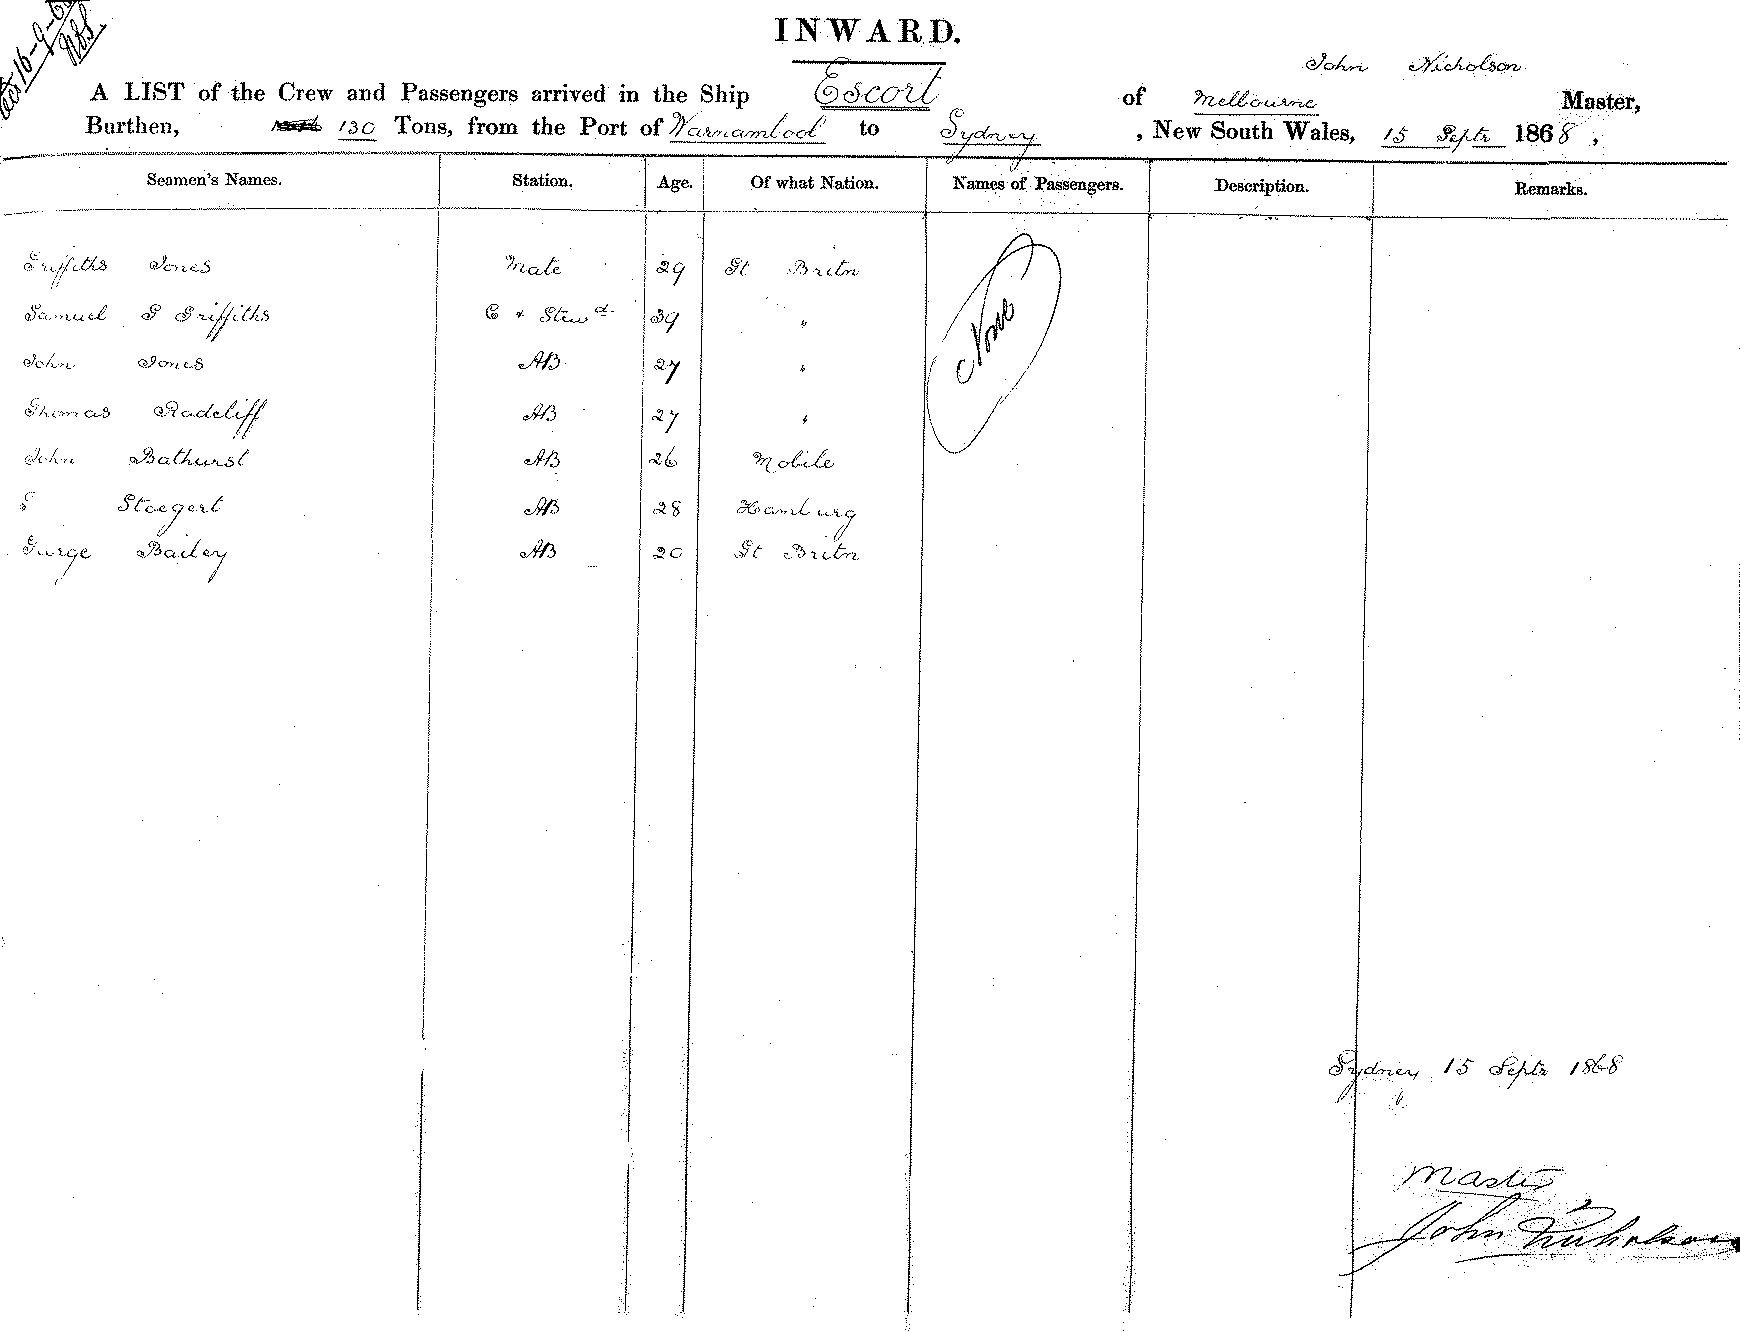 16-9-6
INWARD.
John Nicholson
A LIST of the Crew and Passengers arrived in the Ship Escort of Melbourne Master,
Burthen, 130 Tons, from the Port of Warnambool to Sydney, New South Wales, 15 Septr 1868,
Seamen's Names. Station. Age. Of what Nation. Names of Passengers. Description. Remarks.
Griffiths Jones Mate 29 Gt Britn
Samuel G Griffiths C + Stewd 39 "
None
John Jones AB 27 "
Thomas Radcliff AB 27 "
John Bathurst AB 26 Mobile
G Stoegert AB 28 Hamburg
Gurge Bailey AB 20 Gt Britn
Sydney 15 Septr 1868
Master
John Nicholson